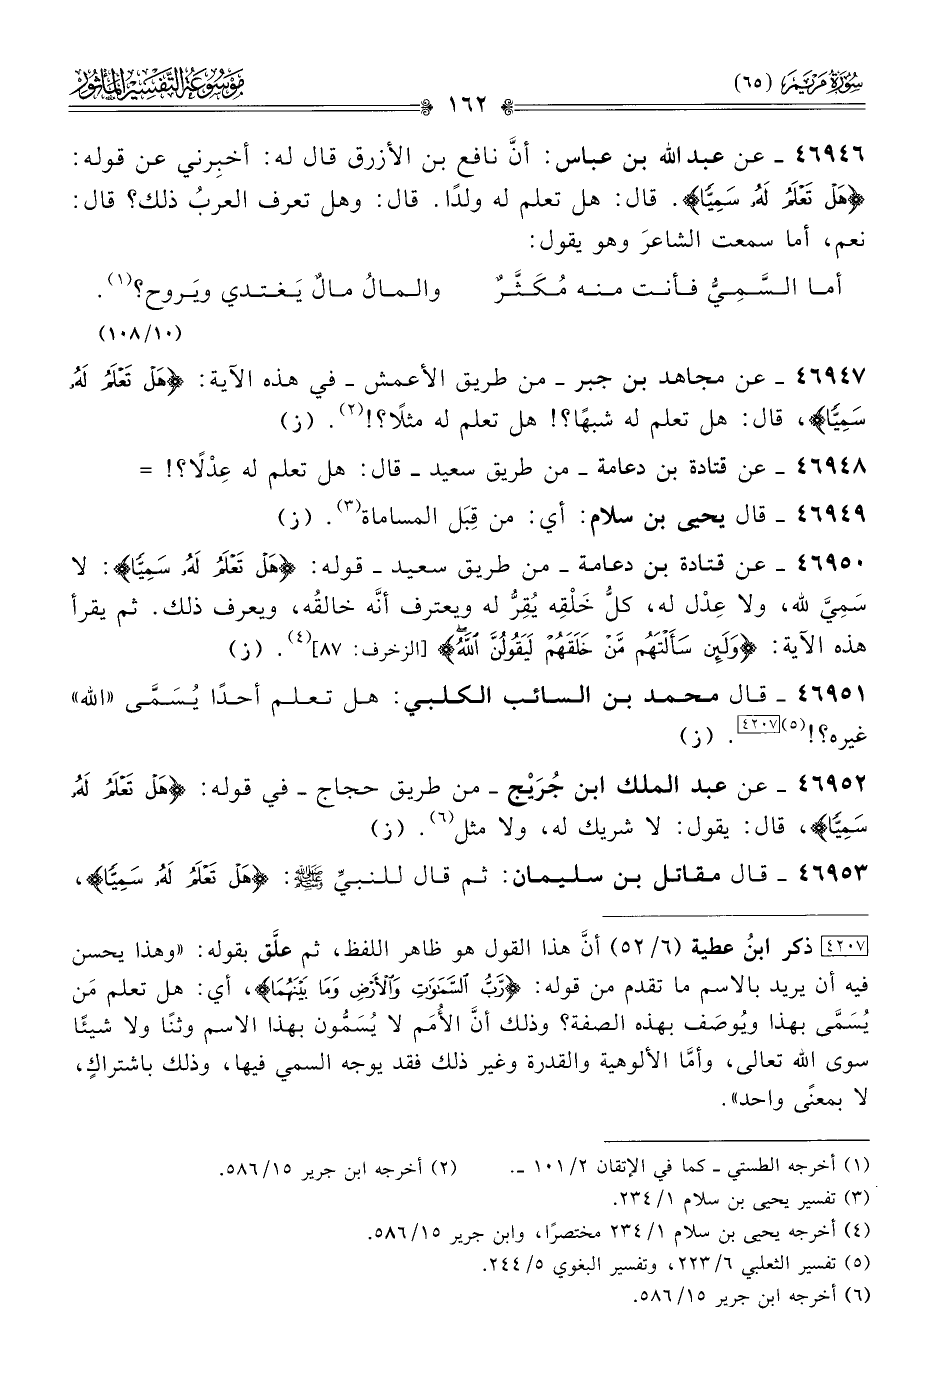 سُورَةُ مَرْيَمَ (٦٥)
مَوْسُوعَةُ التَّفْسِيرِ المَأْثُورِ
١٦٢
٤٦٩٤٦ ـ عن عبد الله بن عباس: أنَّ نافع بن الأزرق قال له: أخبِرني عن قوله:
﴿هَلْ تَعْلَمُ لَهُۥ سَمِيًّا﴾. قال: هل تعلم له ولدًا. قال: وهل تعرف العربُ ذلك؟ قال:
نعم، أما سمعت الشاعرَ وهو يقول:
أما السَّمِيُّ فأنت منه مُكَثَّرٌ والمالُ مالٌ يَغتدي ويَروح؟(١).
(١٠٨/١٠)
٤٦٩٤٧ ـ عن مجاهد بن جبر ـ من طريق الأعمش ـ في هذه الآية: ﴿هَلْ تَعْلَمُ لَهُۥ
سَمِيًّا﴾، قال: هل تعلم له شبهًا؟! هل تعلم له مثلًا؟!(٢). (ز)
٤٦٩٤٨ ـ عن قتادة بن دعامة ـ من طريق سعيد ـ قال: هل تعلم له عِدْلًا؟! =
٤٦٩٤٩ ـ قال يحيى بن سلام: أي: من قِبَل المساماة(٣). (ز)
٤٦٩٥٠ ـ عن قتادة بن دعامة ـ من طريق سعيد ـ قوله: ﴿هَلْ تَعْلَمُ لَهُۥ سَمِيًّا﴾: لا
سَمِيَّ لله، ولا عِدْل له، كلُّ خَلْقِه يُقِرُّ له ويعترف أنَّه خالقُه، ويعرف ذلك. ثم يقرأ
هذه الآية: ﴿وَلَئِن سَأَلْتَهُم مَّنْ خَلَقَهُمْ لَيَقُولُنَّ ٱللَّهُ﴾ [الزخرف: ٨٧](٤). (ز)
٤٦٩٥١ ـ قال محمد بن السائب الكلبي: هل تعلم أحدًا يُسَمَّى «الله»
غيره؟!(٥)[٤٢٠٧]. (ز)
٤٦٩٥٢ ـ عن عبد الملك ابن جُرَيْج ـ من طريق حجاج ـ في قوله: ﴿هَلْ تَعْلَمُ لَهُۥ
سَمِيًّا﴾، قال: يقول: لا شريك له، ولا مثل(٦). (ز)
٤٦٩٥٣ ـ قال مقاتل بن سليمان: ثم قال للنبيِّ ﷺ: ﴿هَلْ تَعْلَمُ لَهُۥ سَمِيًّا﴾،
[٤٢٠٧] ذكر ابنُ عطية (٥٢/٦) أنَّ هذا القول هو ظاهر اللفظ، ثم علَّق بقوله: «وهذا يحسن
فيه أن يريد بالاسم ما تقدم من قوله: ﴿رَّبُّ ٱلسَّمَٰوَٰتِ وَٱلْأَرْضِ وَمَا بَيْنَهُمَا﴾، أي: هل تعلم مَن
يُسَمَّى بهذا ويُوصَف بهذه الصفة؟ وذلك أنَّ الأُمَم لا يُسَمُّون بهذا الاسم وثنًا ولا شيئًا
سوى الله تعالى، وأمَّا الألوهية والقدرة وغير ذلك فقد يوجه السمي فيها، وذلك باشتراكٍ،
لا بمعنًى واحد».
(١) أخرجه الطستي ـ كما في الإتقان ١٠١/٢ ـ. (٢) أخرجه ابن جرير ٥٨٦/١٥.
(٣) تفسير يحيى بن سلام ٢٣٤/١.
(٤) أخرجه يحيى بن سلام ٢٣٤/١ مختصرًا، وابن جرير ٥٨٦/١٥.
(٥) تفسير الثعلبي ٢٢٣/٦، وتفسير البغوي ٢٤٤/٥.
(٦) أخرجه ابن جرير ٥٨٦/١٥.